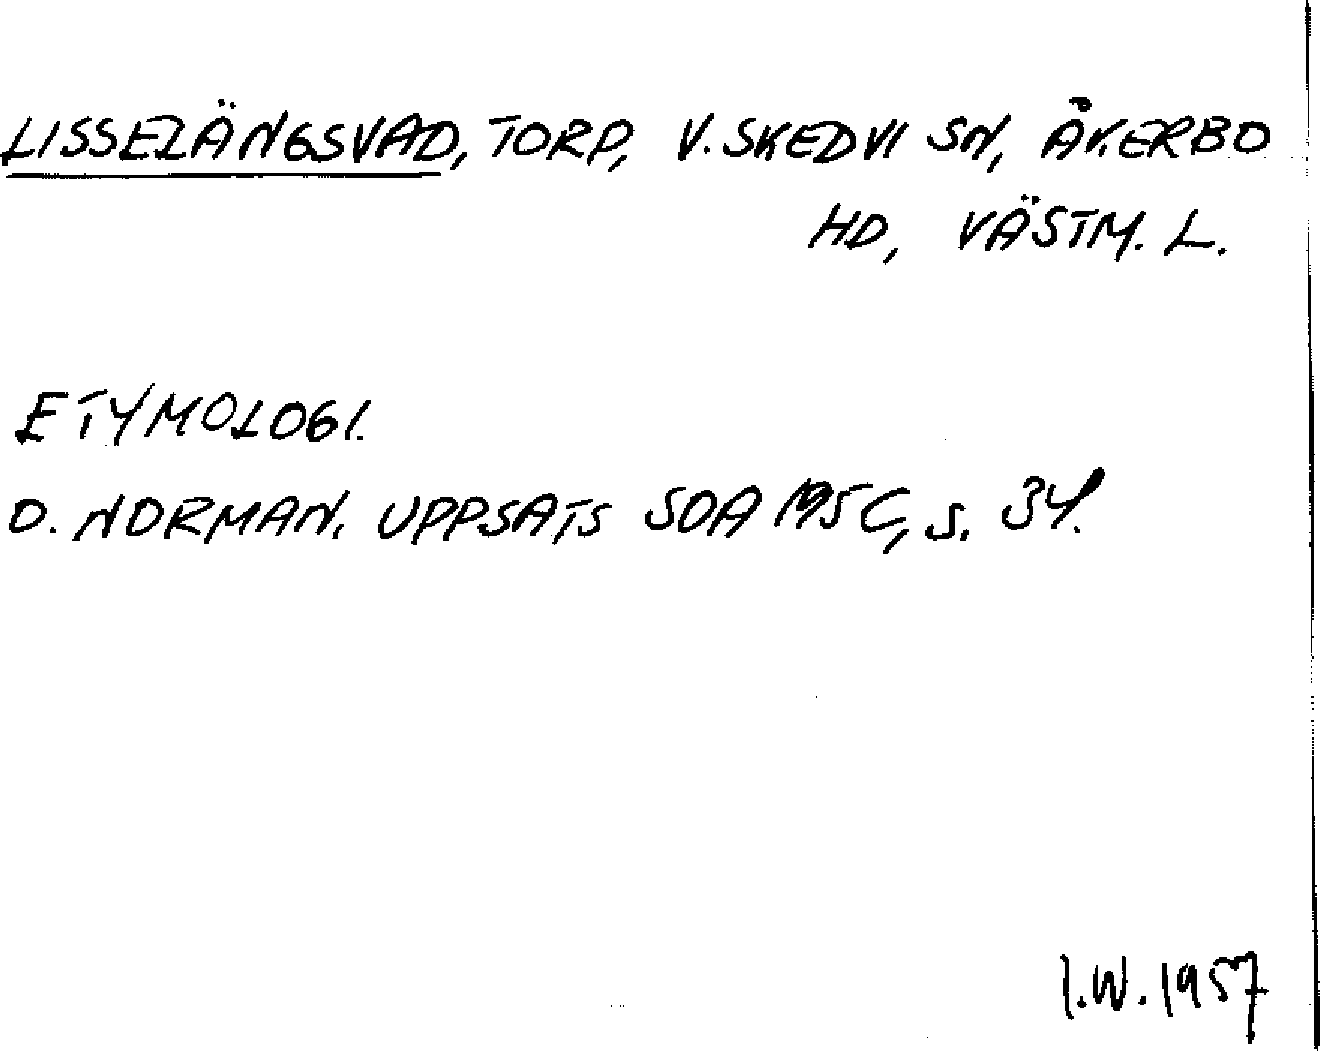 LISSELÄNGSVAD, TORP, V. SKEDVI SN, ÅKERBO
HD, VÄSTM. L.
ETYMOLOGI.
O. NORMAN. UPPSATS SOA 195C, s. 34.
I.W. 1957